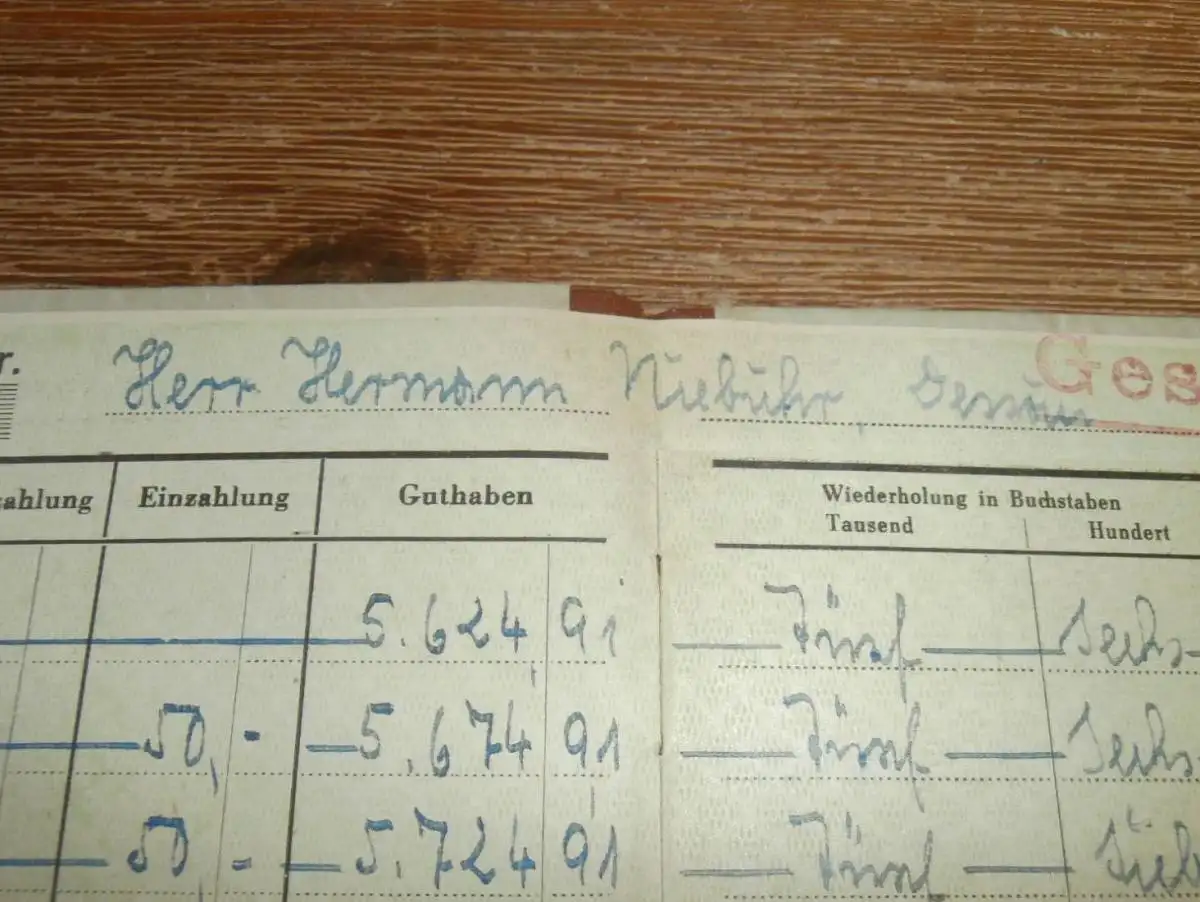 r. Herr Hermann Niebuhr, Ges
zahlung Einzahlung Guthaben Wiederholung in Buchstaben
Tausend Hundert
5.624 91 Fünf Sechs
50,- 5.674 91 Fünf Sechs
50,- 5.724 91 Fünf Sieb